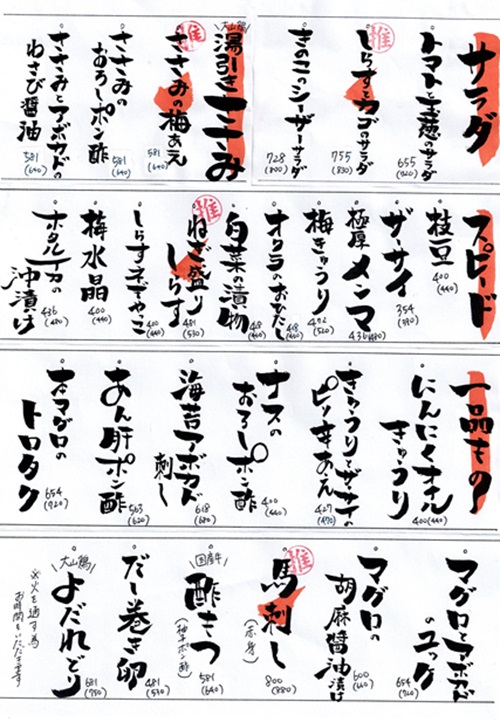 サラダ
トマトと玉葱のサラダ
655
(720)
推
しらすとカブのサラダ
755
(830)
きのこのシーザーサラダ
728
(800)
大山鶏
湯引きささみ
推
ささみの梅あえ
581
(640)
ささみの
おろしポン酢
581
(640)
ささみとアボカドの
わさび醤油
581
(640)
スピード
枝豆
400
(440)
ザーサイ
354
(390)
極厚メンマ
436(480)
梅きゅうり
472
(520)
オクラのおひたし
418
(460)
白菜の漬物
418
(460)
推
ねぎ盛り
しらす
481
(530)
しらすネギやっこ
400
(440)
梅水晶
400
(440)
ホタルイカの
沖漬け
436
(480)
一品もの
にんにくオイル
きゅうり
400(440)
きゅうりとザーサイの
ピリ辛あえ
427
(470)
ナスの
おろしポン酢
400
(440)
海苔アボカド
刺し
618
(680)
あん肝ポン酢
563
(620)
本マグロの
トロタク
654
(720)
マグロとアボカド
のユッケ
654
(720)
マグロの
胡麻醤油漬け
600
(660)
推
馬刺し
(赤身)
800
(880)
国産牛
酢もつ
(柚子ポン酢)
581
(640)
だし巻き卵
481
(530)
大山鶏
よだれどり
681
(750)
※火を通す為
お時間をいただきます